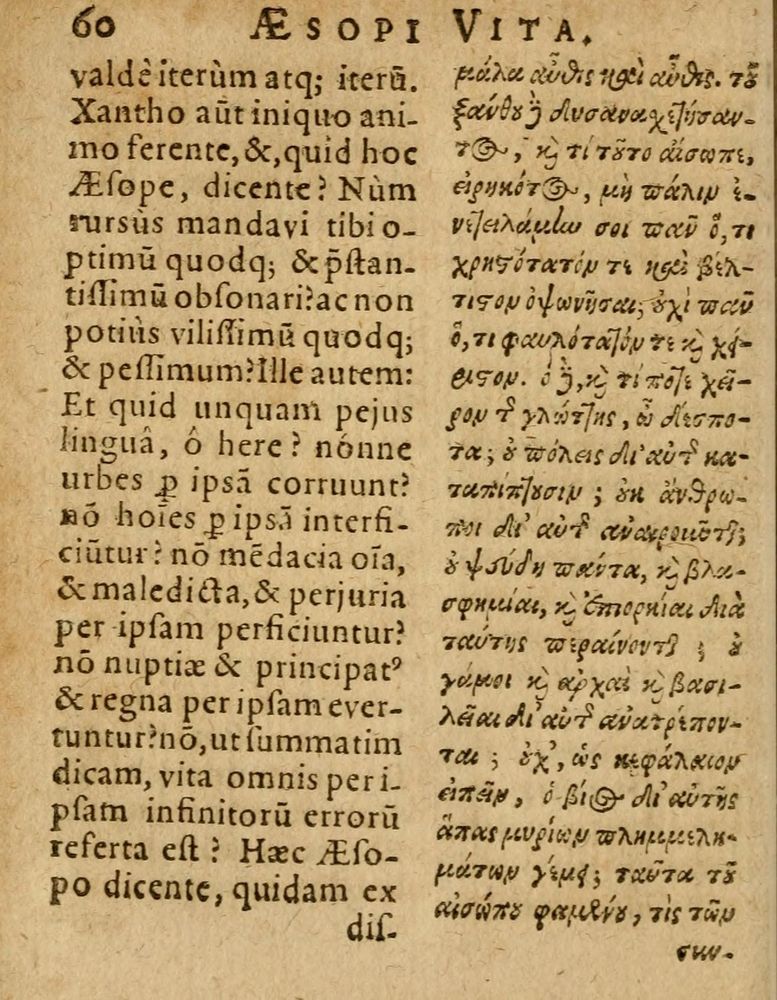 60 ÆSOPI VITA.
valdè iterùm atq; iterũ.
Xantho aũt iniquo ani-
mo ferente, &, quid hoc
Æsope, dicente? Nùm
rursùs mandavi tibi o-
ptimũ quodq; & p̃stan-
tissimũ obsonari? ac non
potiùs vilissimũ quodq;
& pessimum? Ille autem:
Et quid unquam pejus
linguâ, ô here? nónne
urbes ꝑ ipsã corruunt?
nõ hoĩes ꝑ ipsã interfi-
ciũtur? nõ mẽdacia oĩa,
& maledicta, & perjuria
per ipsam perficiuntur?
nõ nuptiæ & principatꝰ
& regna per ipsam ever-
tuntur? nõ, ut summatim
dicam, vita omnis per i-
psam infinitorũ errorũ
referta est? Hæc Æso-
po dicente, quidam ex
dis-
μάλα αὖθις καὶ αὖθις. τοῦ
ξάνθου δὲ δυσανασχετήσαν-
τος, καὶ τί τοῦτο αἴσωπε,
εἰρηκότος, μὴ πάλιν ἐ-
νετειλάμην σοι πᾶν ὅ,τι
χρηστότατόν τε καὶ βέλ-
τιστον ὀψωνῆσαι; οὐχὶ πᾶν
ὅ,τι φαυλότατόν τε καὶ χεί-
ριστον. ὁ δὲ, καὶ τί ποτε χεῖ-
ρον τῆς γλώττης, ὦ δέσπο-
τα; οὐ πόλεις δι' αὐτῆς κα-
ταπίπτουσιν; οὐκ ἄνθρω-
ποι δι' αὐτῆς ἀναιροῦνται;
οὐ ψεύδη πάντα, καὶ βλα-
σφημίαι, καὶ ἐπιορκίαι διὰ
ταύτης περαίνονται; οὐ
γάμοι καὶ ἀρχαὶ καὶ βασι-
λεῖαι δι' αὐτῆς ἀνατρέπον-
ται; οὐχ', ὡς κεφάλαιον
εἰπεῖν, ὁ βίος δι' αὐτῆς
ἅπας μυρίων πλημμελη-
μάτων γέμει; ταῦτα τοῦ
αἰσώπου φαμένου, τὶς τῶν
συν-